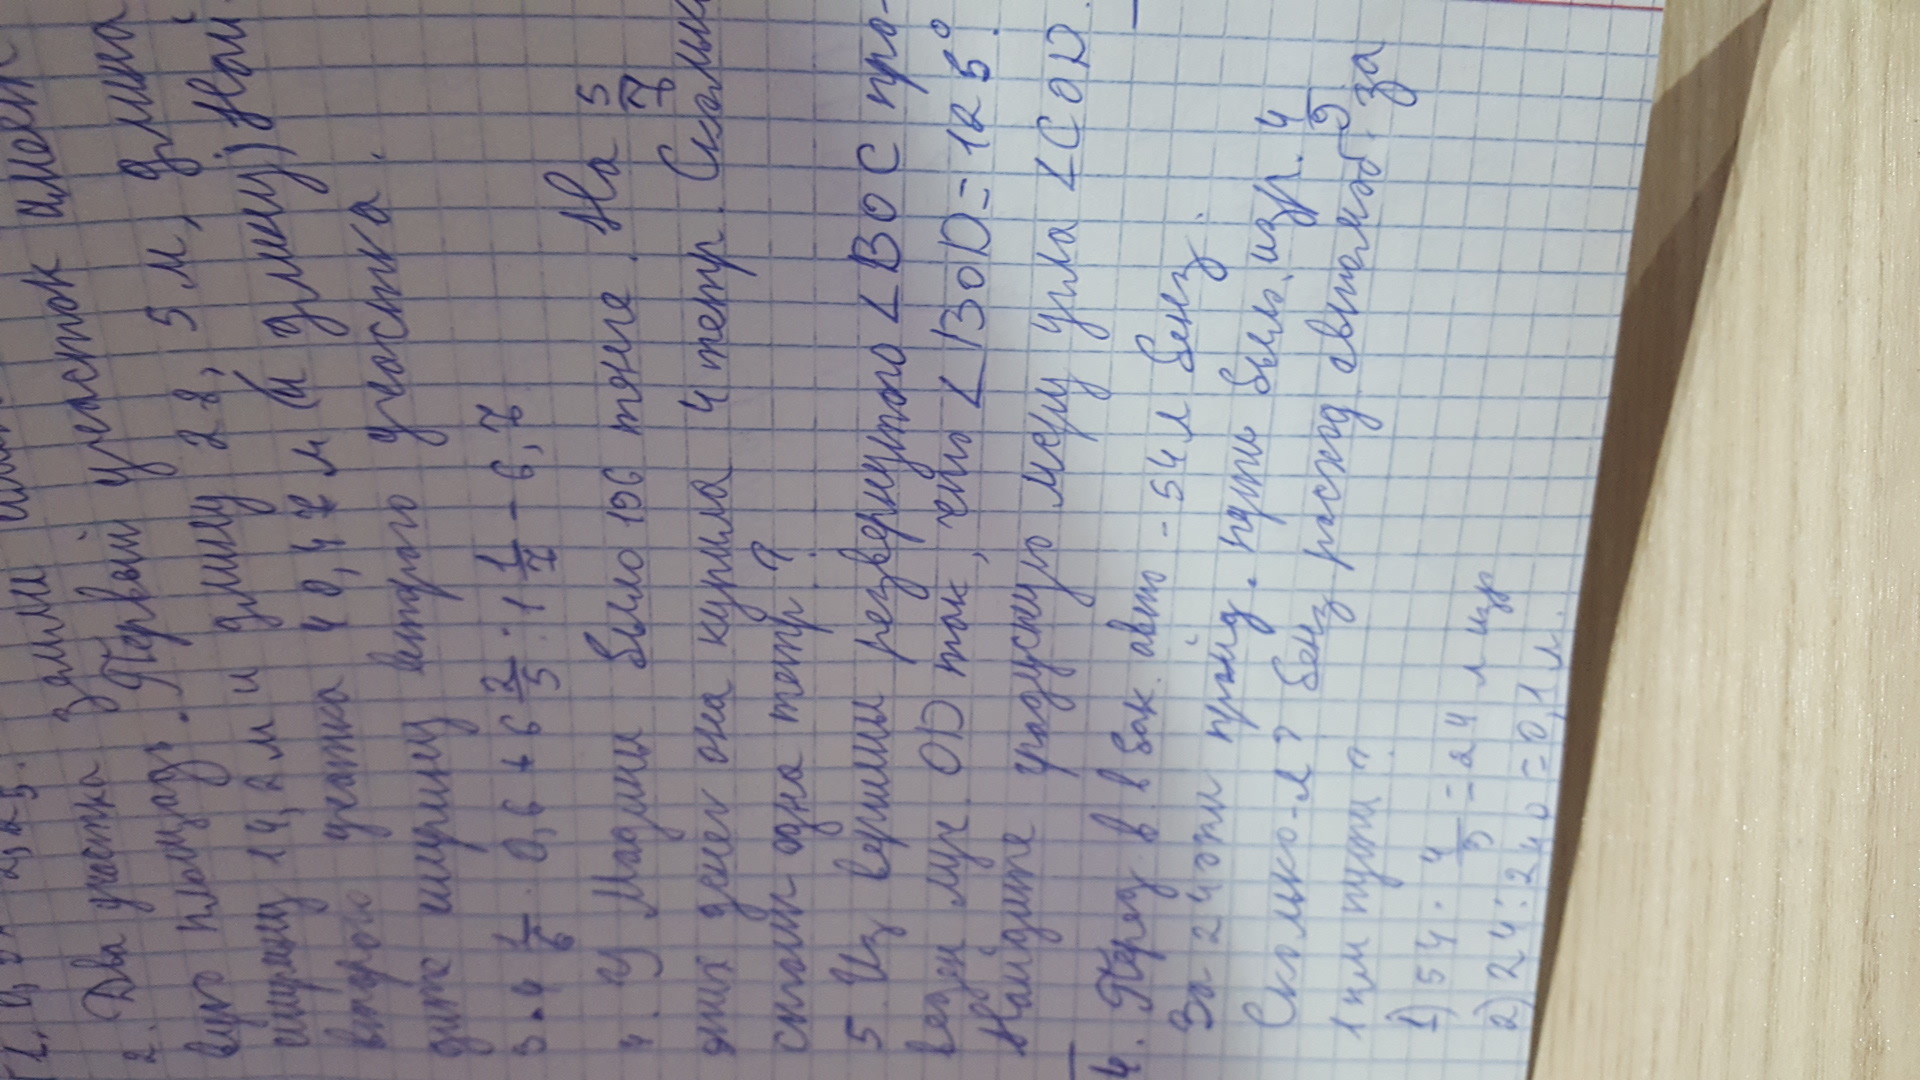 2. Два участка земли имеют один-
вую площадь. Первый участок имеет
ширину 14,2 м и длину 28,5 м, длина
второго участка 40,47 м (и длину) Най
дите ширину второго участка.
3. 4 1/6 · 0,6 + 6 2/5 : 1 1/7 - 6,7
4. У Мадины было 196 тенге. На 5/7
этих денег она купила 4 тетр. Сколько
стоит одна тетр?
5. Из вершины развернутого <BOC про-
веден луч OD так, что <BOD = 125°.
Найдите градусную меру угла <COD
4. Перед. в в бак. авто - 54 л бенз.
За 240 км пройд. пути был. изр. 4/9
Сколько л? бенз расход автомоб. за
1 км пути?
1) 54 · 4/9 = 24 л изр
2) 24 : 240 = 0,1 л.